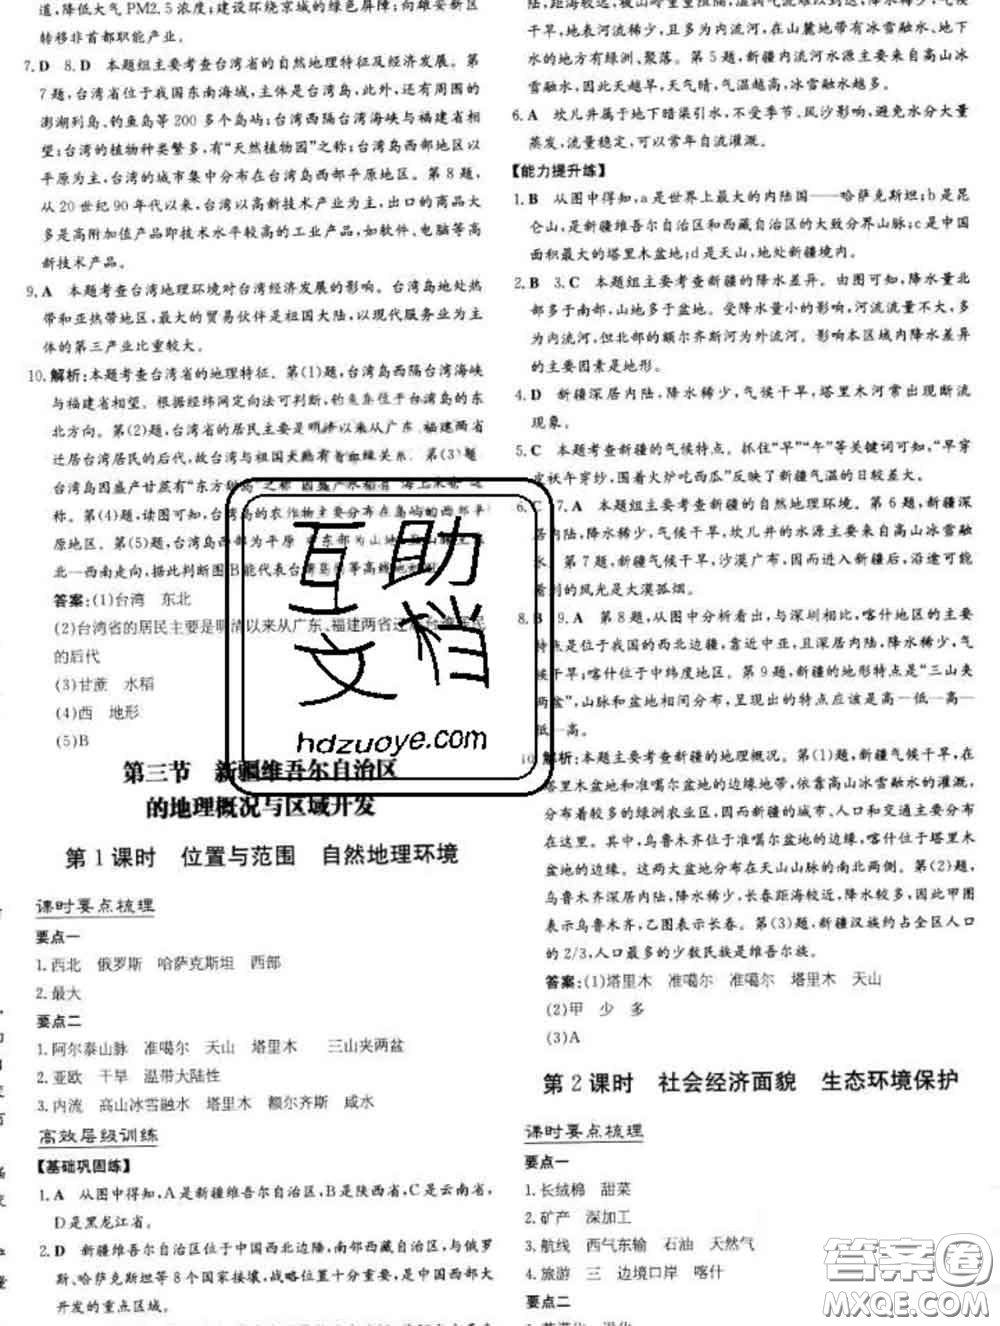 道,降低大气PM2.5浓度;建设环绕京城的绿色屏障;向雄安新区
转移非首都职能产业。
7. D 8. D 本题组主要考查台湾省的自然地理特征及经济发展。第
7题,台湾省位于我国东南海域,主体是台湾岛,此外,还有周围的
澎湖列岛、钓鱼岛等200多个岛屿;台湾西隔台湾海峡与福建省相
望;台湾的植物种类繁多,有“天然植物园”之称;台湾岛西部地区以
平原为主,台湾的城市集中分布在台湾岛西部平原地区。第8题,
从20世纪90年代以来,台湾以高新技术产业为主,出口的商品大
多是高附加值产品即技术水平较高的工业产品,如软件、电脑等高
新技术产品。
9. A 本题考查台湾地理环境对台湾经济发展的影响。台湾岛地处热
带和亚热带地区,最大的贸易伙伴是祖国大陆,以现代服务业为主
的第三产业比重较大。
10. 解析:本题考查台湾省的地理特征。第(1)题,台湾西隔台湾海峡
与福建省相望。根据经纬网定向法可判断,钓鱼岛位于台湾岛的东
北方向。第(2)题,台湾省的居民主要是明清以来从广东、福建两省
迁居台湾居民的后代,故台湾与祖国大陆有着
台湾因盛产甘蔗而有“东方甜岛”之称
称。第(4)题,读图可知,台湾岛的农作物主要分布在岛的西部平
原地区。第(5)题,台湾岛西部为平原
北—西南走向,据此判断图B能代表台湾岛
答案:(1)台湾 东北
(2)台湾省的居民主要是明清以来从广东、福建两省迁
的后代
(3)甘蔗 水稻
(4)西 地形
(5)B
第三节 新疆维吾尔自治区
的地理概况与区域开发
第1课时 位置与范围 自然地理环境
课时要点梳理
要点一
1. 西北 俄罗斯 哈萨克斯坦 西部
2. 最大
要点二
1. 阿尔泰山脉 准噶尔 天山 塔里木 三山夹两盆
2. 亚欧 干旱 温带大陆性
3. 内流 高山冰雪融水 塔里木 额尔齐斯 咸水
高效层级训练
【基础巩固练】
1. A 从图中得知,A是新疆维吾尔自治区,B是陕西省,C是云南省,
D是黑龙江省。
2. D 新疆维吾尔自治区位于中国西北边陲,南邻西藏自治区,与俄罗
斯、哈萨克斯坦等8个国家接壤,战略位置十分重要,是中国西部大
开发的重点区域。
干旱,河流稀少,且多为内流河,在山麓地带有冰雪融水、地下
水的地方有绿洲、聚落。第5题,新疆内流河水源主要来自高山冰
雪融水,因此天越旱,天气晴,气温越高,冰雪融水越多。
6. A 坎儿井属于地下暗渠引水,不受季节、风沙影响,避免水分大量
蒸发,流量稳定,可以常年自流灌溉。
【能力提升练】
1. B 从图中得知,a是世界上最大的内陆国——哈萨克斯坦;b是昆
仑山,是新疆维吾尔自治区和西藏自治区的大致分界山脉;c是中国
面积最大的塔里木盆地;d是天山,地处新疆境内。
2. B 3. C 本题组主要考查新疆的降水差异。由图可得,降水量北
部多于南部,山地多于盆地。受降水量小的影响,河流流量不大,多
为内流河,但北部的额尔齐斯河为外流河。影响本区域降水差异
的主要因素是地形。
4. D 新疆深居内陆,降水稀少,气候干旱,塔里木河常出现断流
现象。
5. C 本题考查新疆的气候特点。抓住“早”“午”等关键词可知,“早穿
皮袄午穿纱,围着火炉吃西瓜”反映了新疆气温的日较差大。
6. C 7. A 本题组主要考查新疆的自然地理环境。第6题,新疆深
居内陆,降水稀少,气候干旱,坎儿井的水源主要来自高山冰雪融
水。第7题,新疆气候干旱,沙漠广布,因而进入新疆后,沿途可能
看到的风光是大漠孤烟。
8. B 9. A 第8题,从图中分析看出,与深圳相比,喀什地区的主要
特点是位于我国的西北边疆,靠近中亚,深居内陆,降水稀少,气候
干旱;喀什位于中纬度地区。第9题,新疆的地形特点是“三山夹
两盆”,山脉和盆地相间分布,呈现出的特点应该是高—低—高—
低—高。
10. 解析:本题主要考查新疆的地理概况。第(1)题,新疆气候干旱,在
盆地边缘,尤其是高山冰雪融水能够灌溉,
较多的绿洲农业区,因而新疆的城市、人口和交通主要分布
在这里。其中,乌鲁木齐位于准噶尔盆地的边缘,喀什位于塔里木
盆地的边缘。这两大盆地分布在天山山脉的南北两侧。第(2)题,
乌鲁木齐深居内陆,降水稀少,长春距海较近,降水较多,因此甲图
表示乌鲁木齐,乙图表示长春。第(3)题,新疆汉族约占全区人口
的2/3,人口最多的少数民族是维吾尔族。
答案:(1)塔里木 准噶尔 准噶尔 塔里木 天山
(2)甲 少 多
(3)A
第2课时 社会经济面貌 生态环境保护
课时要点梳理
要点一
1. 长绒棉 甜菜
2. 矿产 深加工
3. 航线 西气东输 石油 天然气
4. 旅游 三 边境口岸 喀什
要点二
互助
文档
hdzuoye.com
答案圈
MXQE.COM